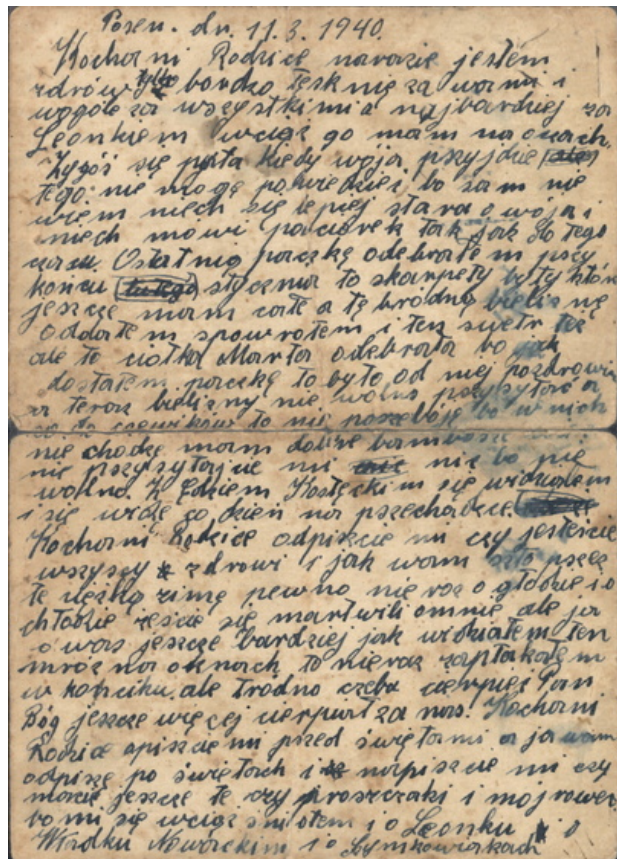 Posen. dn. 11.3.1940.
Kochani Rodzice narazie jestem
zdrów tylko bardzo tęsknię za wami i
wogóle za wszystkimi a najbardziej za
Leonkiem wciąż go mam na oczach.
Zygóś się pyta kiedy wója przyjdzie
tego nie mogę powiedzieć bo sam nie
wiem niech się lepiej stara o wója i
niech mówi paciorek tak jak do tego
czasu. Ostatnią paczkę odebrałem przy
końcu stycznia to skarpety buty które
jeszcze mam całe a tę bródną bieliznę
oddałem spowrotem i ten swetr też
ale to ciotka Marta odebrała bo jak
dostałem paczkę to było od niej pozdrowie
a teraz bielizny nie wolno przysyłać a
co do trewików to nie potrzebuję bo w nich
nie chodzę mam dobre bambosze
nie przysyłajcie mi nic bo nie
wolno. Z Edziem Kosteckim się widziałem
i się widzę co dzień na przechadzce
Kochani Rodzice odpiszcie mi czy jesteście
wszyscy zdrowi i jak wam szło przez
tę ciężką zimę pewno nie raz o głodzie i o
chłodzie żeście się martwili omnie ale ja
o was jeszcze bardziej jak widziałem ten
mróz na oknach to nieraz zapłakałem
w kąńciku ale tródno czeba cierpieć Pan
Bóg jeszcze więcej cierpiał za nas. Kochani
Rodzice opiszcie mi przed świętami a ja wam
odpiszę po świętach i napiszcie mi czy
macie jeszcze te czy proszczaki i mój rower
bo mi się wciąż śni o tem i o Leonku i o
Władku Nowackim i o Szymkowiakach